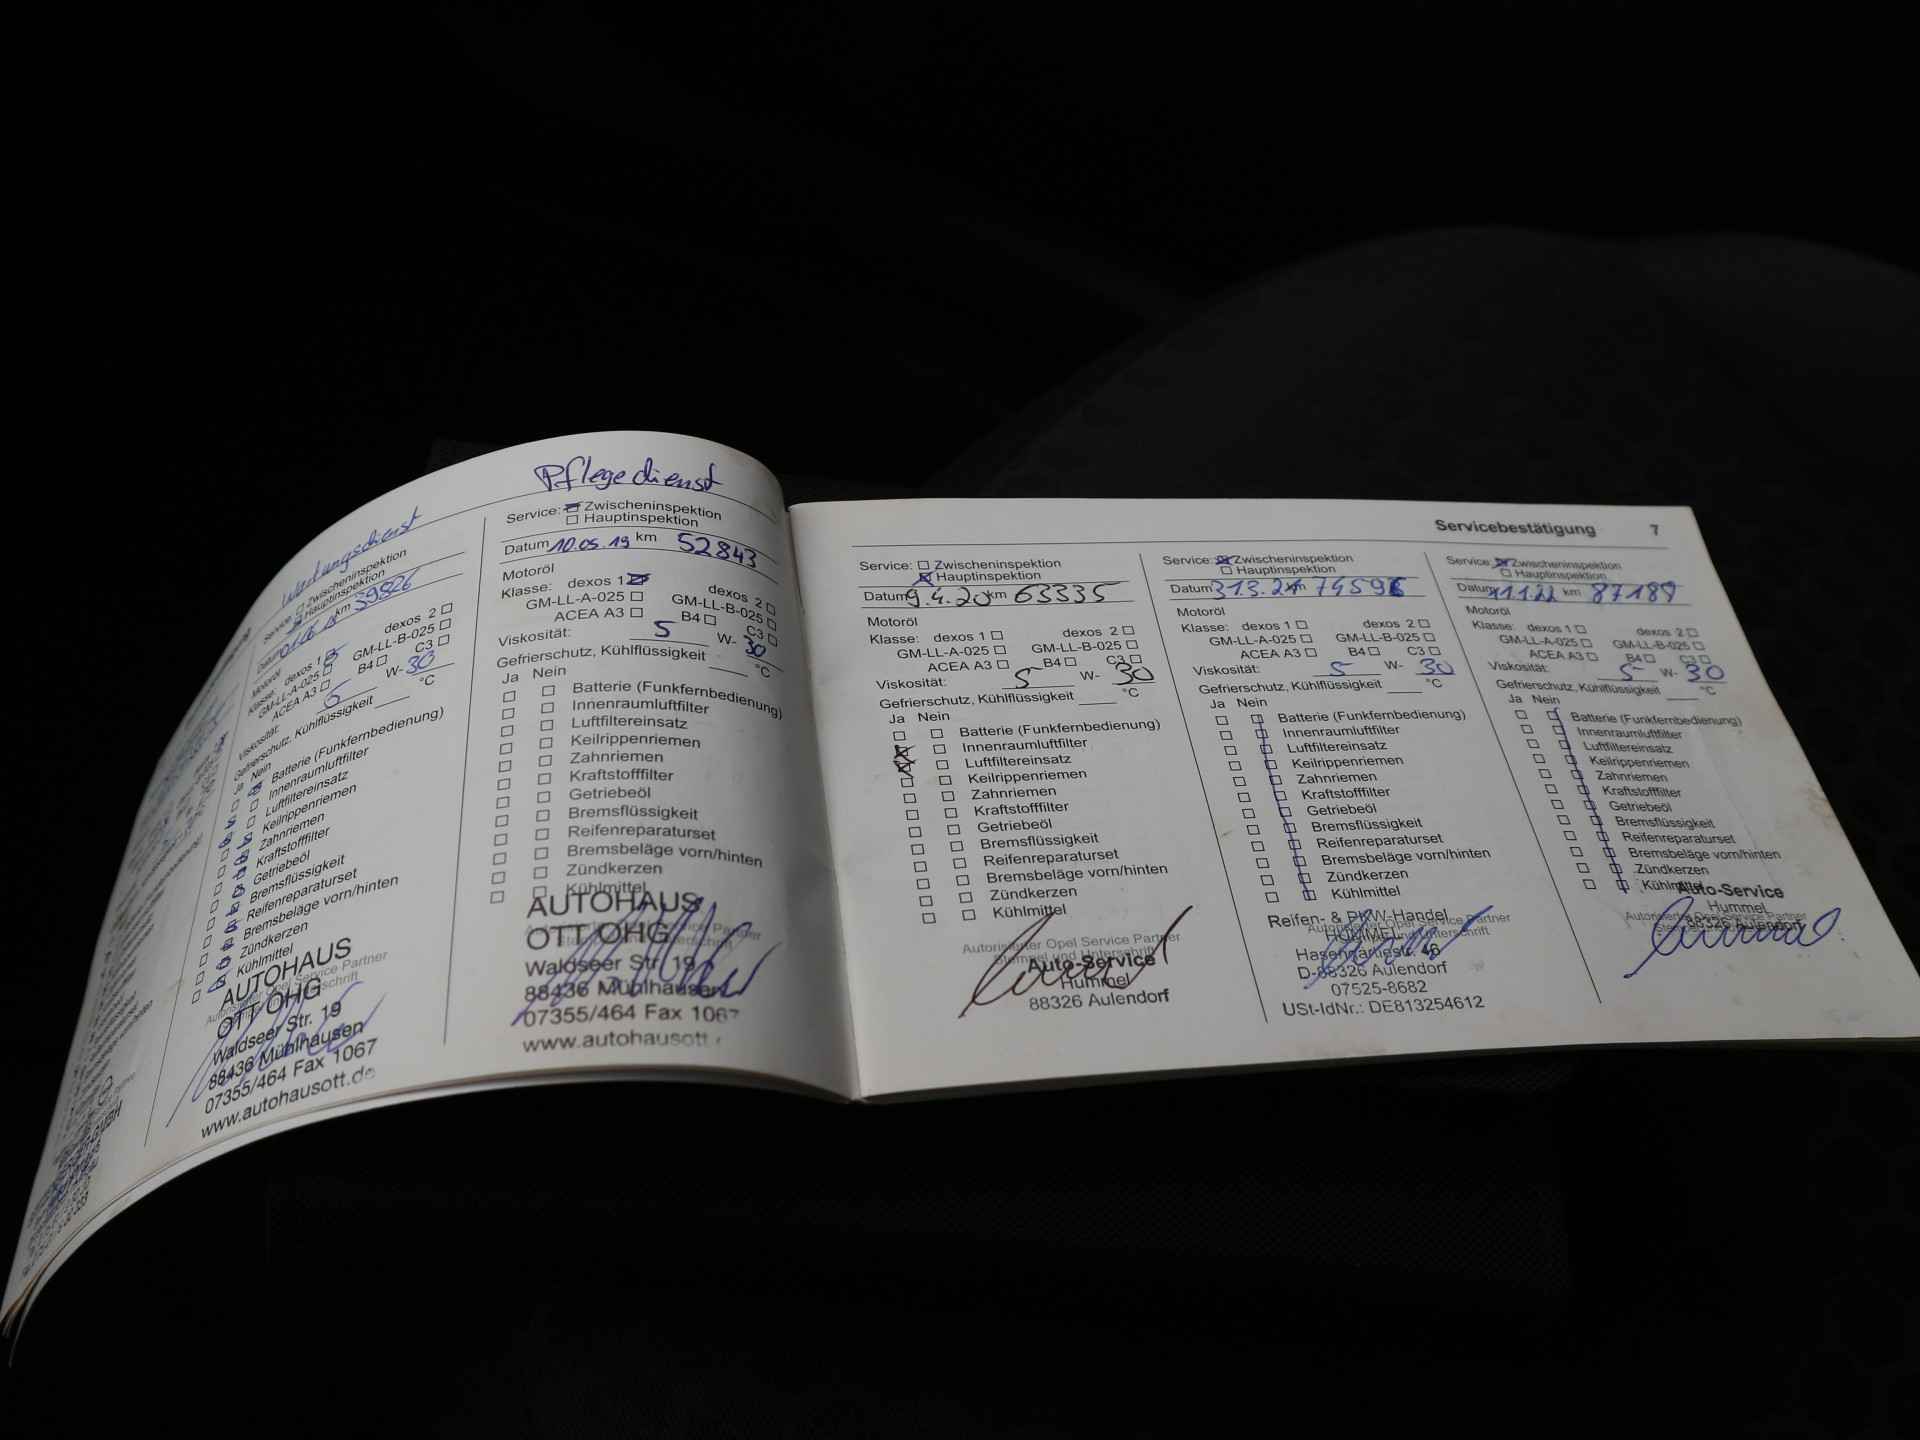 Wartungsdienst
Service: Zwischeninspektion
Hauptinspektion
km 39826
Motoröl
Klasse: dexos 1 dexos 2
GM-LL-A-025 GM-LL-B-025
ACEA A3 B4 C3
Viskosität: 5 W- 30
Gefrierschutz, Kühlflüssigkeit °C
Ja Nein
Batterie (Funkfernbedienung)
Innenraumluftfilter
Luftfiltereinsatz
Keilrippenriemen
Zahnriemen
Kraftstofffilter
Getriebeöl
Bremsflüssigkeit
Reifenreparaturset
Bremsbeläge vorn/hinten
Zündkerzen
Kühlmittel
AUTOHAUS
OTT OHG
Waldseer Str. 19
88436 Mühlhausen
07355/464 Fax 1067
www.autohausott.de
Pflegedienst
Service: Zwischeninspektion
Hauptinspektion
Datum 10.05.19 km 52843
Motoröl
Klasse: dexos 1 dexos 2
GM-LL-A-025 GM-LL-B-025
ACEA A3 B4 C3
Viskosität: 5 W- 30
Gefrierschutz, Kühlflüssigkeit °C
Ja Nein
Batterie (Funkfernbedienung)
Innenraumluftfilter
Luftfiltereinsatz
Keilrippenriemen
Zahnriemen
Kraftstofffilter
Getriebeöl
Bremsflüssigkeit
Reifenreparaturset
Bremsbeläge vorn/hinten
Zündkerzen
Kühlmittel
AUTOHAUS
OTT OHG
Waldseer Str. 19
88436 Mühlhausen
07355/464 Fax 1067
www.autohausott.
Servicebestätigung 7
Service: Zwischeninspektion
Hauptinspektion
Datum 9.4.20 km 63335
Motoröl
Klasse: dexos 1 dexos 2
GM-LL-A-025 GM-LL-B-025
ACEA A3 B4 C3
Viskosität: 5 W- 30
Gefrierschutz, Kühlflüssigkeit °C
Ja Nein
Batterie (Funkfernbedienung)
Innenraumluftfilter
Luftfiltereinsatz
Keilrippenriemen
Zahnriemen
Kraftstofffilter
Getriebeöl
Bremsflüssigkeit
Reifenreparaturset
Bremsbeläge vorn/hinten
Zündkerzen
Kühlmittel
Autorisierter Opel Service Partner
Stempel und Unterschrift
Auto-Service
Hummel
88326 Aulendorf
Service: Zwischeninspektion
Hauptinspektion
Datum 31.3.21 km 74596
Motoröl
Klasse: dexos 1 dexos 2
GM-LL-A-025 GM-LL-B-025
ACEA A3 B4 C3
Viskosität: 5 W- 30
Gefrierschutz, Kühlflüssigkeit °C
Ja Nein
Batterie (Funkfernbedienung)
Innenraumluftfilter
Luftfiltereinsatz
Keilrippenriemen
Zahnriemen
Kraftstofffilter
Getriebeöl
Bremsflüssigkeit
Reifenreparaturset
Bremsbeläge vorn/hinten
Zündkerzen
Kühlmittel
Reifen- & PKW-Handel
HUMMEL
Hasengärtlestr. 46
D-88326 Aulendorf
07525-8682
USt-IdNr.: DE813254612
Service: Zwischeninspektion
Hauptinspektion
Datum km 87189
Motoröl
Klasse: dexos 1 dexos 2
GM-LL-A-025 GM-LL-B-025
ACEA A3 B4 C3
Viskosität: 5 W- 30
Gefrierschutz, Kühlflüssigkeit °C
Ja Nein
Batterie (Funkfernbedienung)
Innenraumluftfilter
Luftfiltereinsatz
Keilrippenriemen
Zahnriemen
Kraftstofffilter
Getriebeöl
Bremsflüssigkeit
Reifenreparaturset
Bremsbeläge vorn/hinten
Zündkerzen
Kühlmittel
Auto-Service
Hummel
88326 Aulendorf